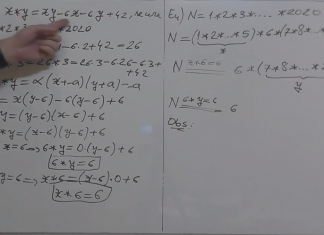 x*y = xy-6x-6y+42,
*2020
-6·2+42=26
*3=26·3-6·26-6·3+
+42
*y=α(x+a)(y+a)-a
=x(y-6)-6(y-6)+6
y=(y-6)(x-6)+6
*y=(x-6)(y-6)+6
x=6=>6*y=0(y-6)+6
6*y=6
y=6=>x*6=(x-6)·0+6
x*6=6
E4) N=1*2*3*....*2020
N=(1*2*...5)*6*(7*8*...
x
N x*6=6 6*(7*8*...*2
y
N 6*y=6 = 6
Obs: